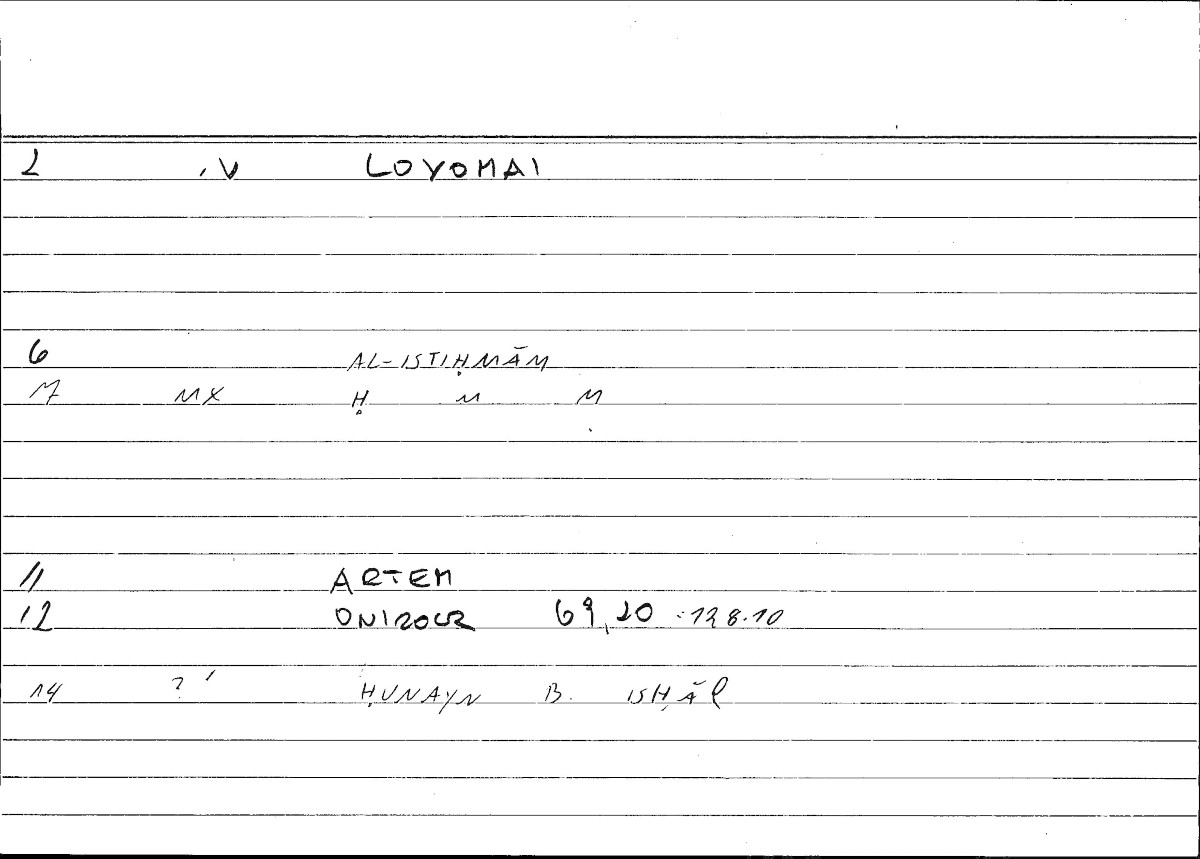 2 .V LOYOMAI
6 AL-ISTIḤMĀM
7 MX Ḥ M M
11 ARTEM
12 ONIROCR 69,20 :128.10
14 ? ' ḤUNAYN B. ISḤĀQ